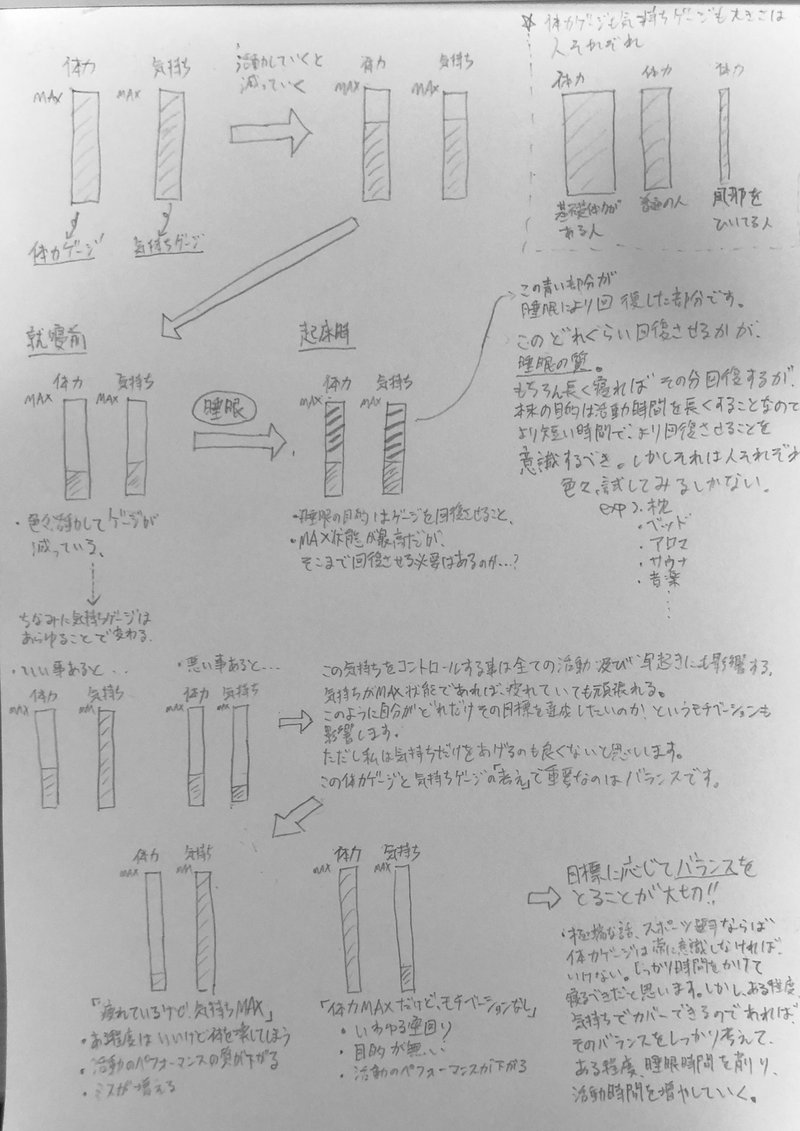 ☆ 体力ゲージも気持ちゲージも大きさは
人それぞれ
体力
体力
体力
基礎体力が
ある人
普通の人
風邪を
ひいてる人
体力
気持ち
MAX
MAX
体力ゲージ
気持ちゲージ
活動していくと
減っていく
体力
気持ち
MAX
MAX
就寝前
体力
気持ち
MAX
MAX
・色々活動してゲージが
減っている。
睡眠
起床時
体力
気持ち
MAX
MAX
・睡眠の目的はゲージを回復させること、
・MAX状態が最高だが、
そこまで回復させる必要はあるのか…?
この青い部分が
睡眠により回復した部分です。
このどれぐらい回復させるかが、
睡眠の質。
もちろん長く寝ればその分回復するが、
本来の目的は活動時間を長くすることなので
より短い時間で、より回復させることを
意識するべき。しかしそれは人それぞれ
色々、試してみるしかない。
exp). 枕
・ベッド
・アロマ
・サウナ
・音楽
ちなみに気持ちゲージは
あらゆることで変わる.
・いい事あると...
体力
気持ち
MAX
MAX
・悪い事あると...
体力
気持ち
MAX
MAX
この気持ちをコントロールする事は全ての活動及び早起きにも影響する.
気持ちがMAX状態であれば、疲れていても頑張れる。
このように自分がどれだけその目標を達成したいのか、というモチベーションも
影響します.
ただし私は気持ちだけをあげるのも良くないと思います。
この体力ゲージと気持ちゲージの「考え」で重要なのはバランスです。
体力
気持ち
MAX
MAX
「疲れているけど、気持ちMAX」
・ある程度はいいけど体を壊してしまう
・活動のパフォーマンスの質が下がる
・ミスが増える
体力
気持ち
MAX
MAX
「体力MAXだけど、モチベーションなし」
・いわゆる空回り
・目的が無い
・活動のパフォーマンスが下がる
目標に応じてバランスを
とることが大切!!
・極端な話、スポーツ選手ならば
体力ゲージは常に意識しなければ、
いけない。しっかり時間をかけて
寝るべきだと思います。しかし、ある程度、
気持ちでカバーできるのであれば、
そのバランスをしっかり考えて、
ある程度、睡眠時間を削り、
活動時間を増やしていく。